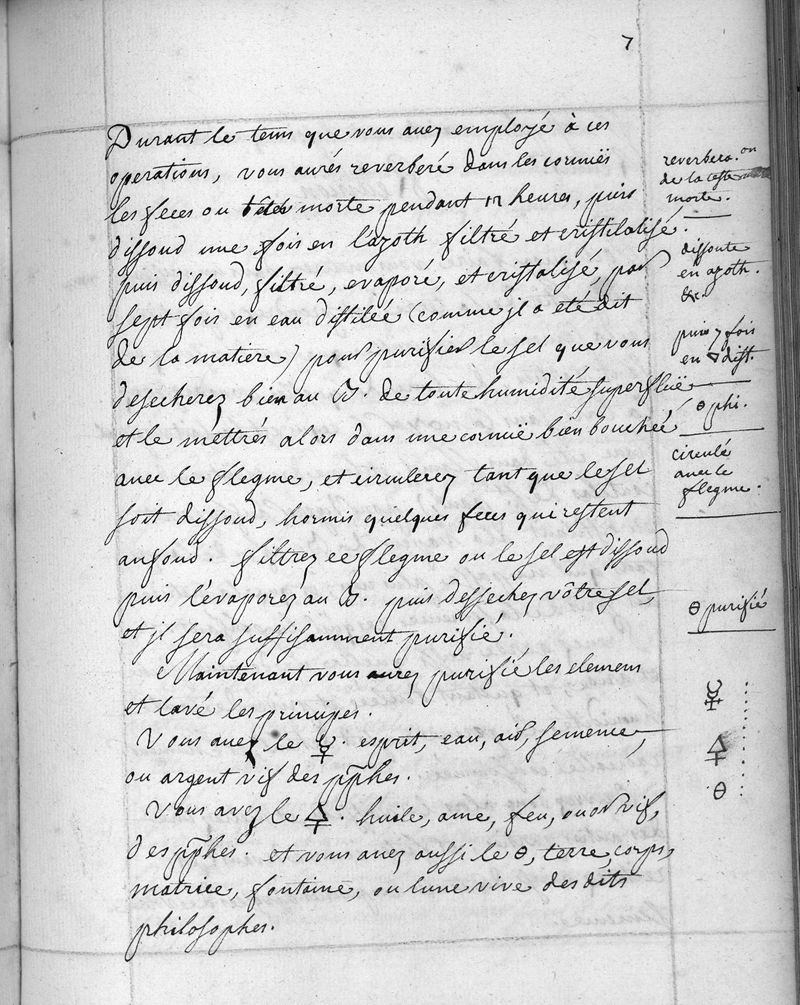 7
Durant le tems que vous avez employé à ces
operations, vous aurés reverberé dans les cornuës
les feces ou teste morte pendant 12 heures, puis
dissoud une fois en l'azoth filtré et cristilalisé.
puis dissoud, filtré, evaporé, et cristalisé, par
sept fois en eau distilée (comme jl a eté dit
de la matiere) pour purifier le sel que vous
desecherez bien au B. de toute humidité superfluë
et le mettrés alors dans une cornuë bien bouchée
avec le flegme, et circulerez tant que le sel
soit dissoud, hormis quelques feces qui restent
au fond. filtrez ce flegme ou le sel est dissoud
puis l'évaporez au B. puis dessechez vôtre sel,
et jl sera suffisamment purifié.
Maintenant vous avez purifié les elemens
et lavé les principes.
Vous avez le ☿. esprit, eau, air, semence,
ou argent vif des pphes.
Vous avez le 🜍. huile, ame, feu, ou or vif,
des pphes. et vous avez aussi le θ, terre, corps,
matrice, fontaine, ou lune vive des dits
philosophes.
reverbera.on
de la teste
morte.
dissoute
en azoth.
&c.
puis 7 fois
en dist.
θ phi.
circulé
avec le
flegme.
θ purifié
☿
🜍
θ